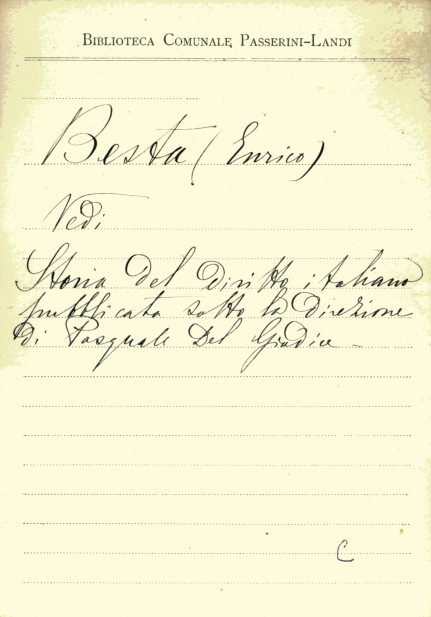 BIBLIOTECA COMUNALE PASSERINI-LANDI
Besta (Enrico)
Vedi
Storia del diritto italiano
pubblicata sotto la direzione
di Pasquale Del Giudice -
C